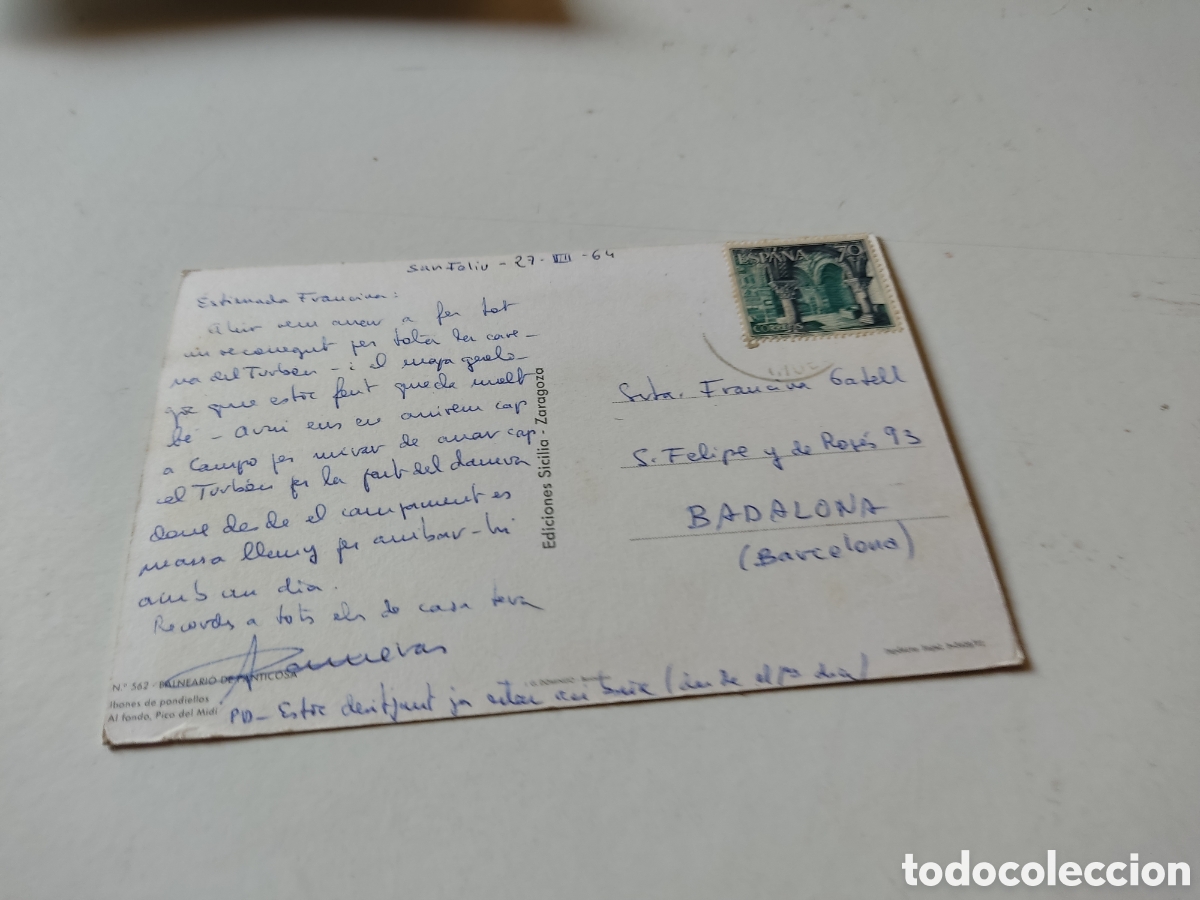 San Feliu - 27 - VIII - 64
Estimada Francina:
Ahir vem anar a fer tot
un recorregut per tota la care-
na del Turbón - i el mapa geolo-
gic que estic fent queda molt
bé - Avui ens en anirem cap
a Campo per mirar de anar cap
el Turbón per la part del darrera
donc desde el campament es
massa lluny per arribar-hi
amb un dia.
Records a tots els de casa teva
PD - Estic desitjant ja estar
ESPAÑA 70
CORREOS
Srta. Francina Gatell
S. Felipe y de Rosés 93
BADALONA
(Barcelona)
Ediciones Sicilia - Zaragoza
N.° 562 - BALNEARIO DE PANTICOSA
Ibones de pondiellos
Al fondo, Pico del Midi
todocoleccion